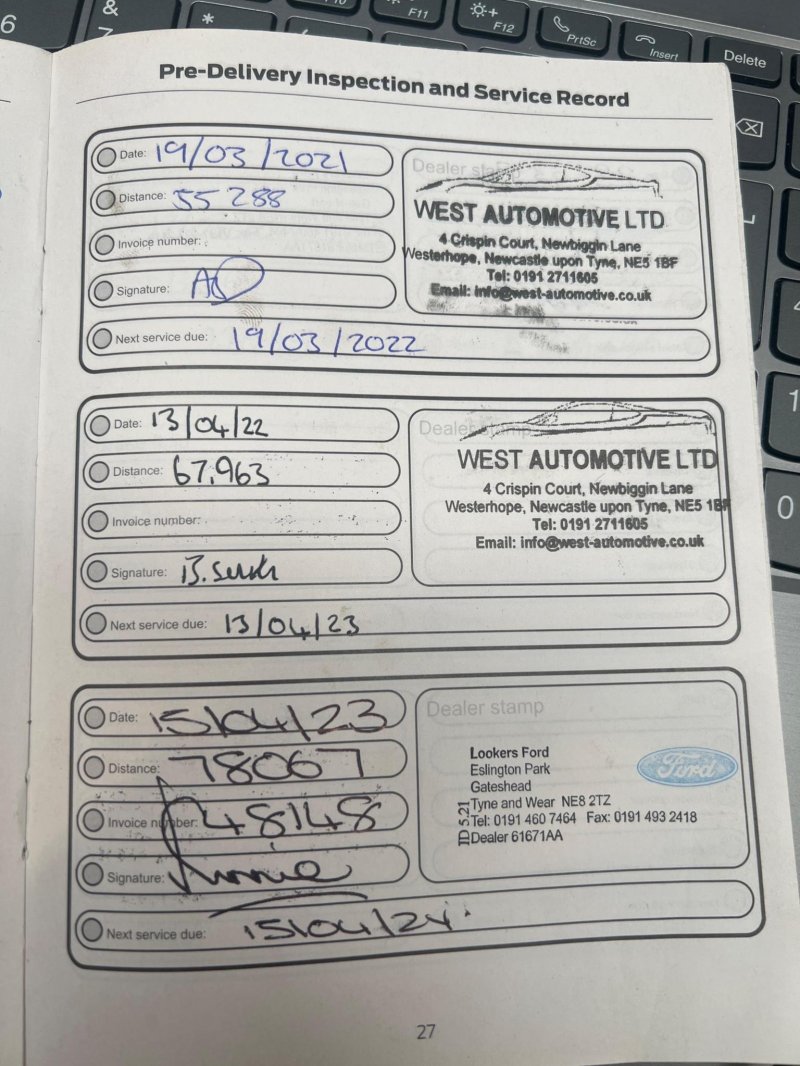 &
6
7
*
F11
F12
PrtSc
Insert
Delete
Pre-Delivery Inspection and Service Record
Date: 19/03/2021
Distance: 55288
Invoice number:
Signature:
Next service due: 19/03/2022
Dealer stamp
WEST AUTOMOTIVE LTD
4 Crispin Court, Newbiggin Lane
Westerhope, Newcastle upon Tyne, NE5 1BF
Tel: 0191 2711605
Email: info@west-automotive.co.uk
Date: 13/04/22
Distance: 67,963
Invoice number:
Signature:
Next service due: 13/04/23
Dealer stamp
WEST AUTOMOTIVE LTD
4 Crispin Court, Newbiggin Lane
Westerhope, Newcastle upon Tyne, NE5 1BF
Tel: 0191 2711605
Email: info@west-automotive.co.uk
Date: 15/04/23
Distance: 78067
Invoice number: 48148
Signature:
Next service due: 15/04/24
Dealer stamp
Lookers Ford
Eslington Park
Gateshead
Tyne and Wear NE8 2TZ
Tel: 0191 460 7464 Fax: 0191 493 2418
Dealer 61671AA
TD 5.21
Ford
27
1
0